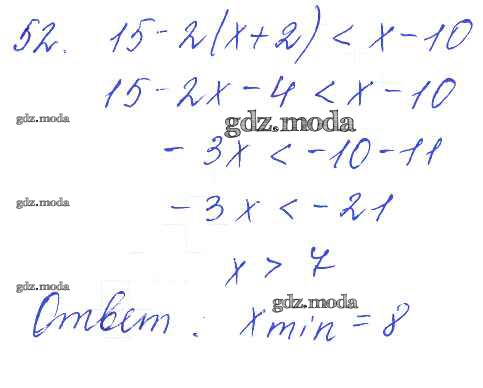 52. 15-2(x+2) < x-10
15-2x-4 < x-10
gdz.moda
gdz.moda
-3x < -10-11
gdz.moda
-3x < -21
x > 7
gdz.moda
gdz.moda
Ответ: xmin = 8